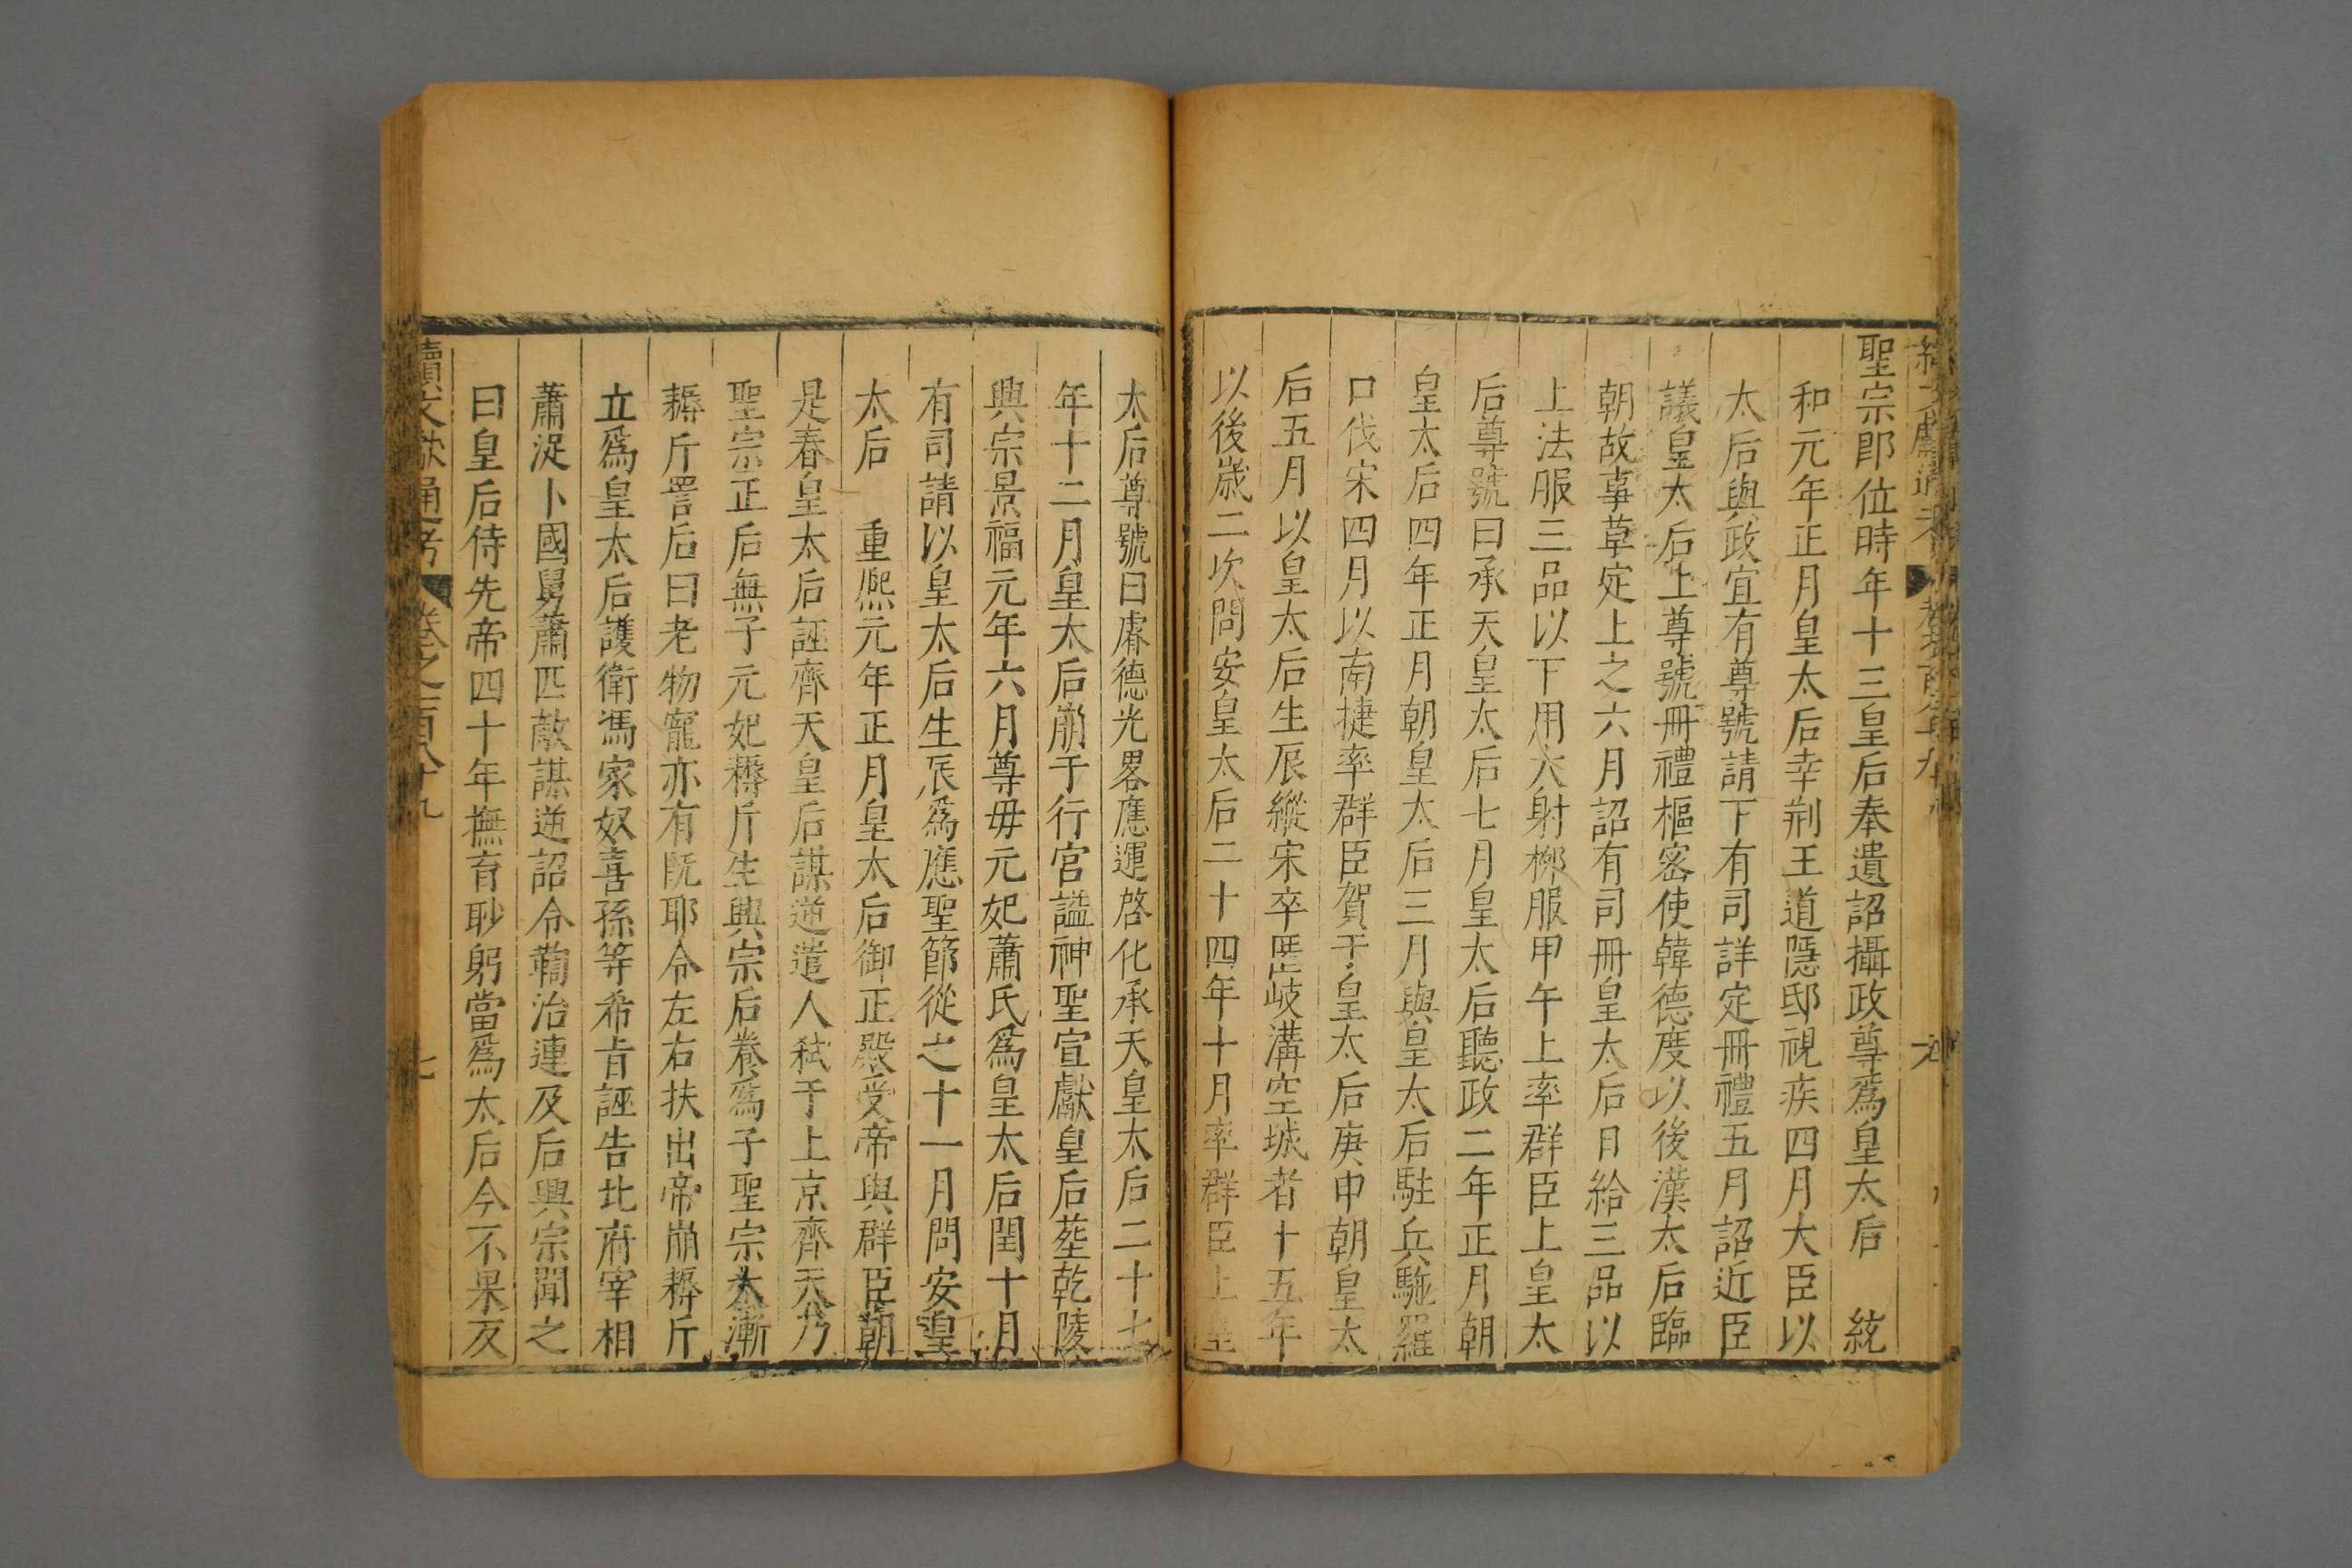 聖宗即位時年十三皇后奉遺詔攝政尊爲皇太后　統
和元年正月皇太后幸荆王道隱邸視疾四月大臣以
太后與政宜有尊號請下有司詳定冊禮五月詔近臣
議皇太后上尊號冊禮樞密使韓德度以後漢太后臨
朝故事草定上之六月詔有司冊皇太后日給三品以
上法服三品以下用大射栁服甲午上率群臣上皇太
后尊號曰承天皇太后七月皇太后聽政二年正月朝
皇太后四年正月朝皇太后三月與皇太后駐兵駞羅
口伐宋四月以南捷率群臣賀于皇太后庚申朝皇太
后五月以皇太后生辰縱宋卒匿岐溝空城者十五年
以後歲二次問安皇太后二十四年十月率群臣上皇
太后尊號曰睿德光畧應運啓化承天皇太后二十七
年十二月皇太后崩于行宮謚神聖宣獻皇后塟乾陵
興宗景福元年六月尊毋元妃蕭氏爲皇太后閏十月
有司請以皇太后生辰爲應聖節從之十一月問安皇
太后　重熈元年正月皇太后御正殿受帝與群臣朝
是春皇太后誣齊天皇后謀逆遣人弒于上京齊天乃
聖宗正后無子元妃耨斤生興宗后養爲子聖宗大漸
耨斤詈后曰老物寵亦有旣耶令左右扶出帝崩耨斤
立爲皇太后護衛馮家奴喜孫等希旨誣告北府宰相
蕭浞卜國舅蕭匹敵謀逆詔令鞫治連及后興宗聞之
曰皇后侍先帝四十年撫育眇躬當爲太后今不果反
續文獻通考
卷之一百八十九
七